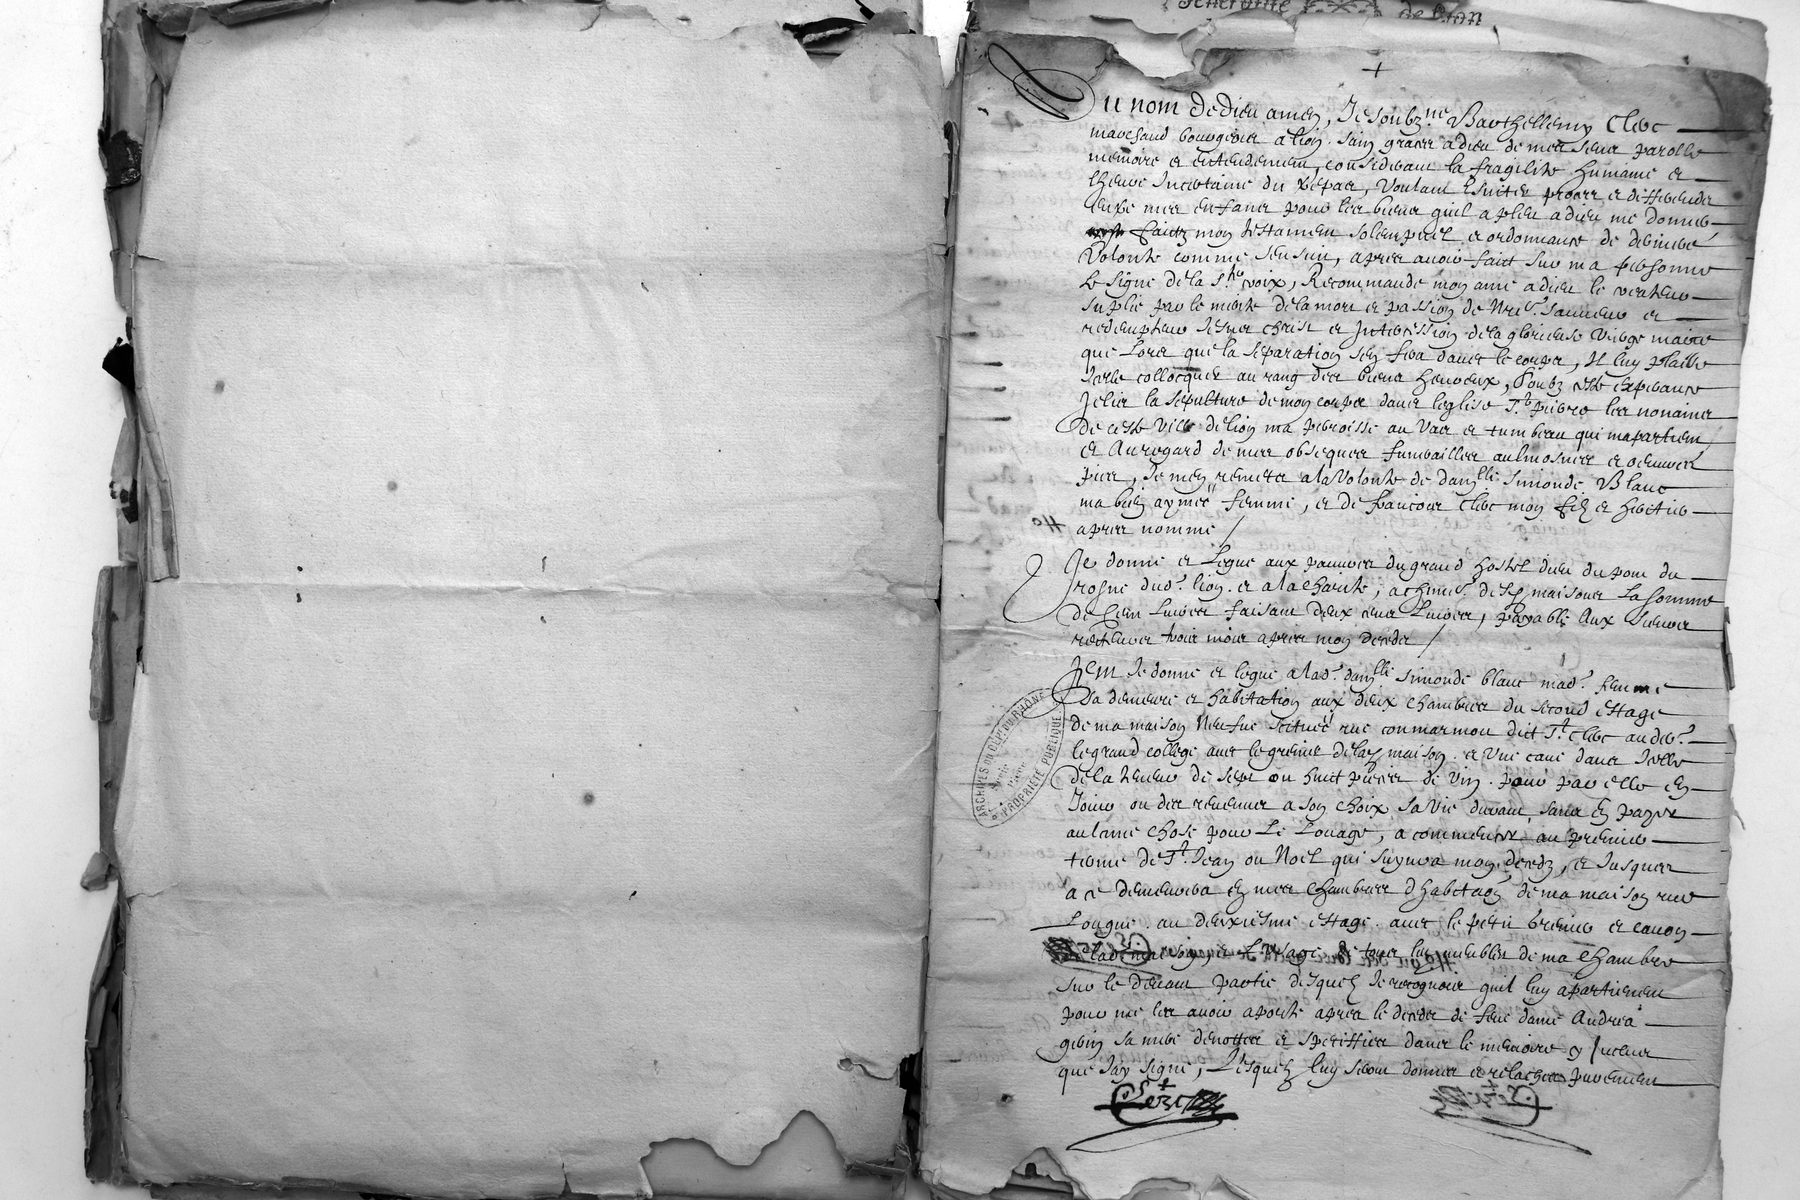 de Lion
Au nom de dieu amen, Je soubzne Barthellemy Clerc
marchand bourgeois a lion, sain graces a dieu de mes sens parolle
memoire et entendement, considerant la fragilite humaine et
lheure incertaine du trepas, voulant esviter proces et differendz
entre mes enfans pour les biens quil a pleu a dieu me donner
faictz mon testament solempnel et ordonnance de derniere
volonte comme sensuit, apres avoir faict sur ma personne
le signe de la Ste croix, Recommande mon ame a dieu le createur
suplie par le merite de la mort et passion de Nre Sauveur et
redempteur Jesus christ et Intercession de la glorieuse vierge marie
que Lors que la separation sen fera davec le corps, Il luy plaise
Icelle collocquer au rang des biens heureux, soubz ceste esperance
Jeslis la sepulture de mon corps dans leglise St pierre les nonains
de ceste ville de lion ma perroisse au vas et tumbeau qui mapartient
et Au regard de mes obseques funerailles aulmosnes et oeuvres
pies, Je men remetz a la volonte de damlle Simonde Blanc
ma bien aymee femme, et de francois Clerc mon filz et heritier
apres nomme /
Je donne et Legue aux pauvres du grand hostel dieu du pont du
rosne dud. lion et a la charite, a chune desd. maisons La somme
de Cent Livres faisant deux cens Livres, payable Aux sieurs
recteurs trois mois apres mon deceds /
Item Je donne et legue a lad. damlle Simonde blanc mad. femme
Sa demeure et habitation aux deux chambres du second estage
de ma maison Neufve scituee rue commarmot dict St Clerc au der.
le grand college avec le grenier de lad. maison et Une cave dans Icelle
de la teneur de sept ou huict pieces de vin pour par elle en
Jouir ou des revenus a son choix sa vie durant, sans en payer
aulcune chose pour Le Louage, a commencer au premier
terme de St Jean ou Noel qui suyvra mon deceds, et Jusques
a ce demeurera en mes chambres dhabitaon de ma maison rue
Longue au deuxiesme estage avec le petit grenier et cavon
de lad. maison, et Lusage de tous les meubles de ma chambre
sur le devant partie desquelz Je recognois quil luy apartiennent
pour me les avoir aporte apres le deceds de feue dame Andrea
sa mere denottes et speciffies dans le memoire
que Jay signe, Lesquelz luy seront donnes et relaches purement
Clerc
ARCHIVES DU DEPT DU RHÔNE
PROPRIÉTÉ PUBLIQUE